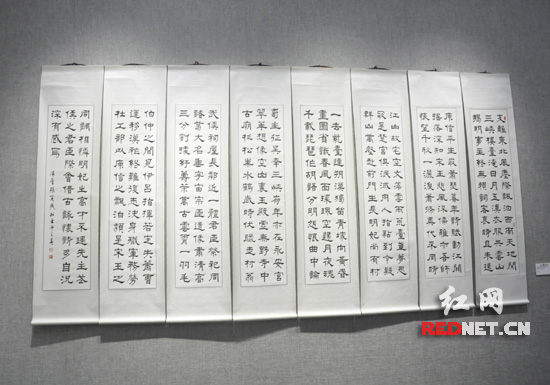 支離東北風塵際漂泊西南天地間
三峽樓臺淹日月五溪衣服共雲山
羯胡事主終無賴詞客哀時且未還
庾信平生最蕭瑟暮年詩賦動江關
搖落深知宋玉悲風流儒雅亦吾師
悵望千秋一灑淚蕭條異代不同時
江山故宅空文藻雲雨荒臺豈夢思
最是楚宮俱泯滅舟人指點到今疑
群山萬壑赴荊門生長明妃尚有村
一去紫臺連朔漠獨留青塚向黃昏
畫圖省識春風面環珮空歸月夜魂
千載琵琶作胡語分明怨恨曲中論
蜀主征吳幸三峽崩年亦在永安宮
翠華想像空山裏玉殿虛無野寺中
古廟杉松巢水鶴歲時伏臘走村翁
武侯祠屋長鄰近一體君臣祭祀同
諸葛大名垂宇宙宗臣遺像肅清高
三分割據紆籌策萬古雲霄一羽毛
伯仲之間見伊呂指揮若定失蕭曹
運移漢祚終難復志決身殲軍務勞
杜工部以庾信之漂泊類是宋玉之
同調相憐明妃生當不遇先主答
侯之君臣際會借古跡懷詩多自況
深有感焉
红网
REDNET.CN